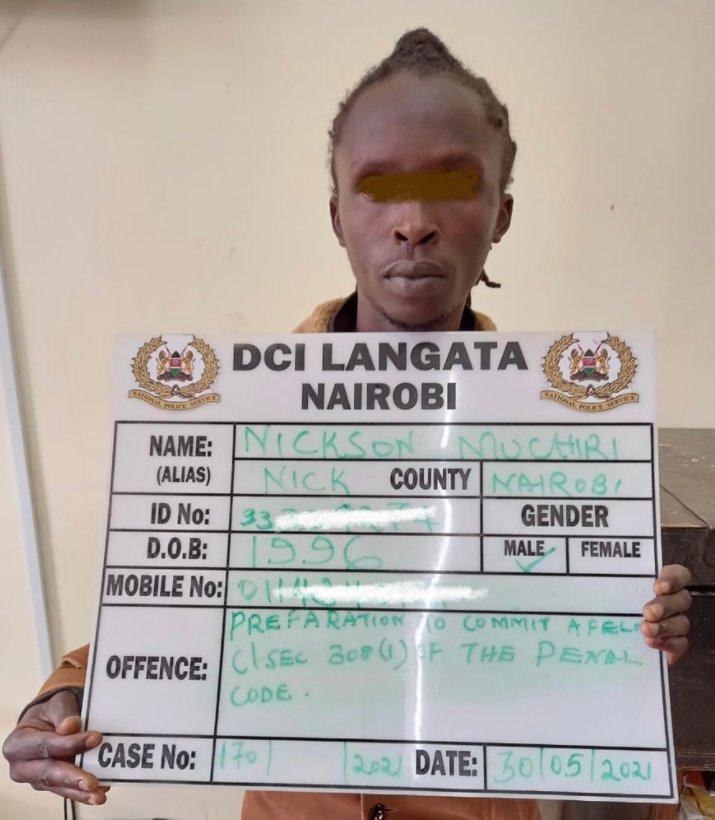 DCI LANGATA
NAIROBI
NATIONAL POLICE SERVICE
NATIONAL POLICE SERVICE
NAME: NICKSON MUCHIRI
(ALIAS) NICK COUNTY NAIROBI
ID No: 33
GENDER
D.O.B: 1996 MALE ✓ FEMALE
MOBILE No:
OFFENCE: PREPARATION TO COMMIT A FELO
C/SEC 308(1) OF THE PENAL
CODE.
CASE No: 170/ /2021 DATE: 30/05/2021